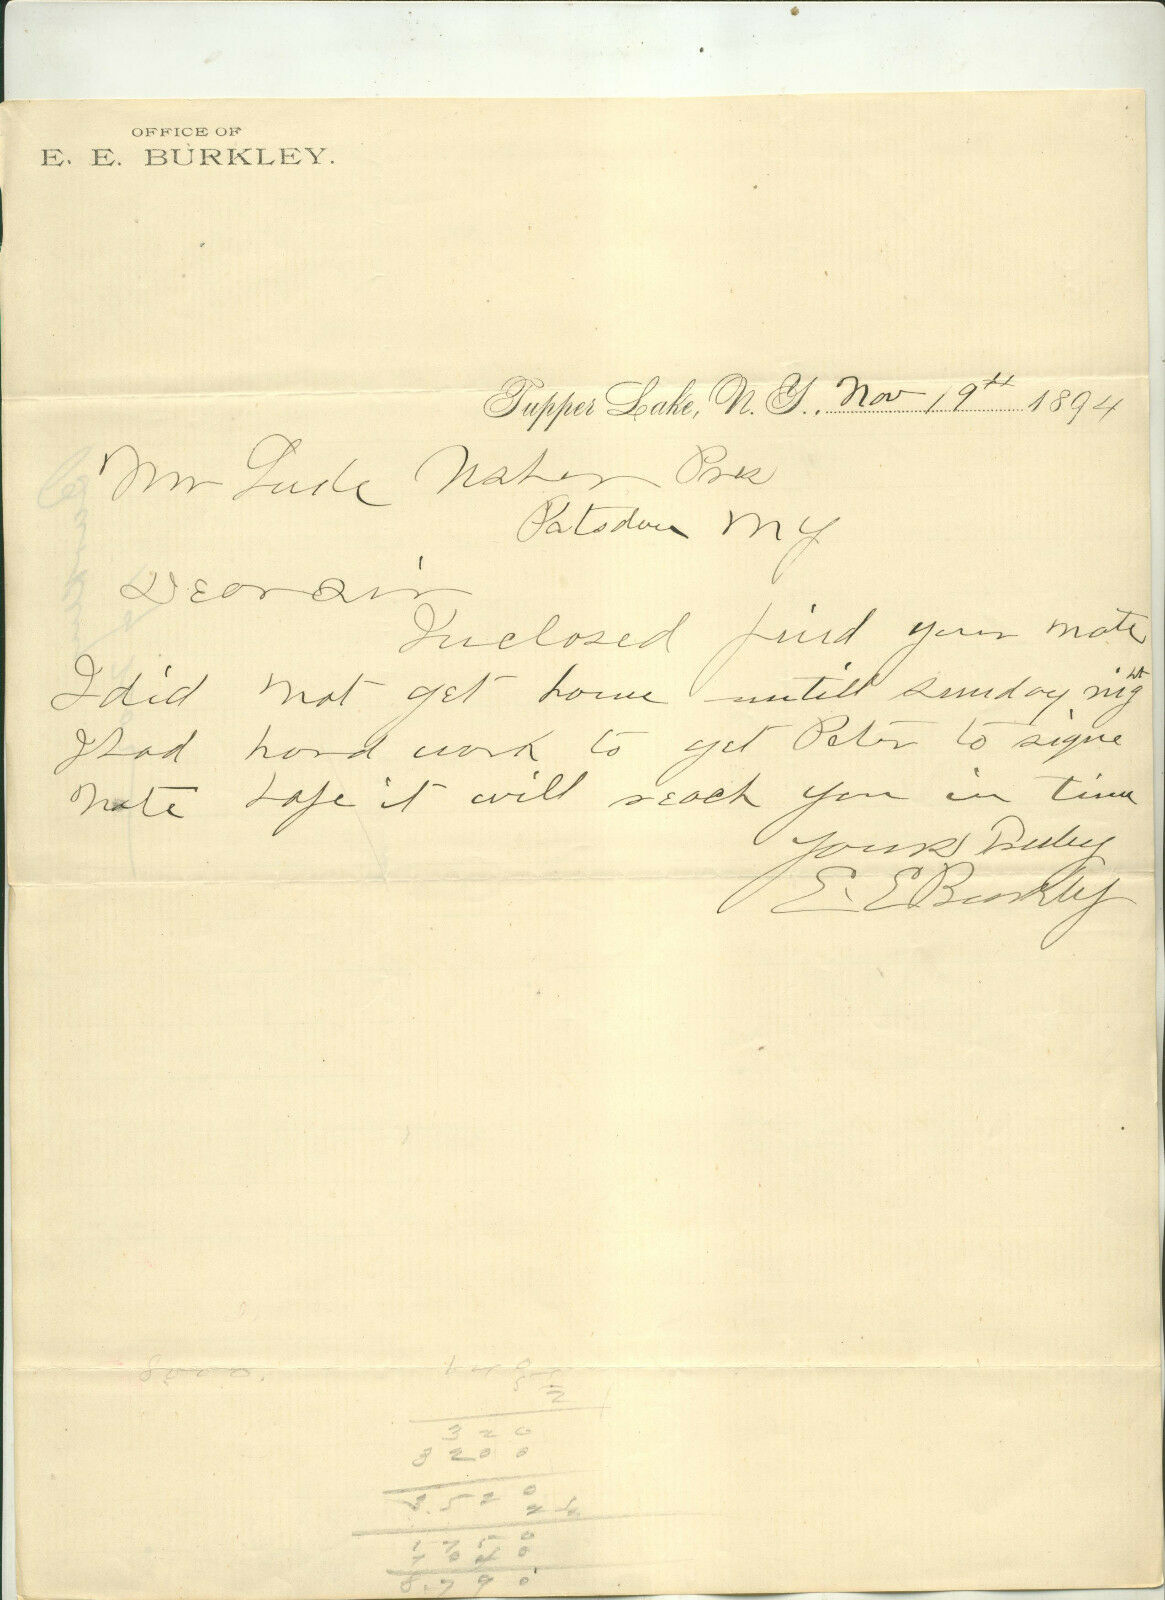 OFFICE OF
E. E. BURKLEY.
Tupper Lake, N. Y., Nov 19th 1894
Mr Lude Usher Pres
Potsdam N Y
Dear Sir
Inclosed find your note
I did not get home untill sunday night
I had hard work to get Peter to signe
note hope it will reach you in time
yours Truley
E. E Burkley
3 2 0
3 2 0 0
3.5 2 0
8.7 9 0